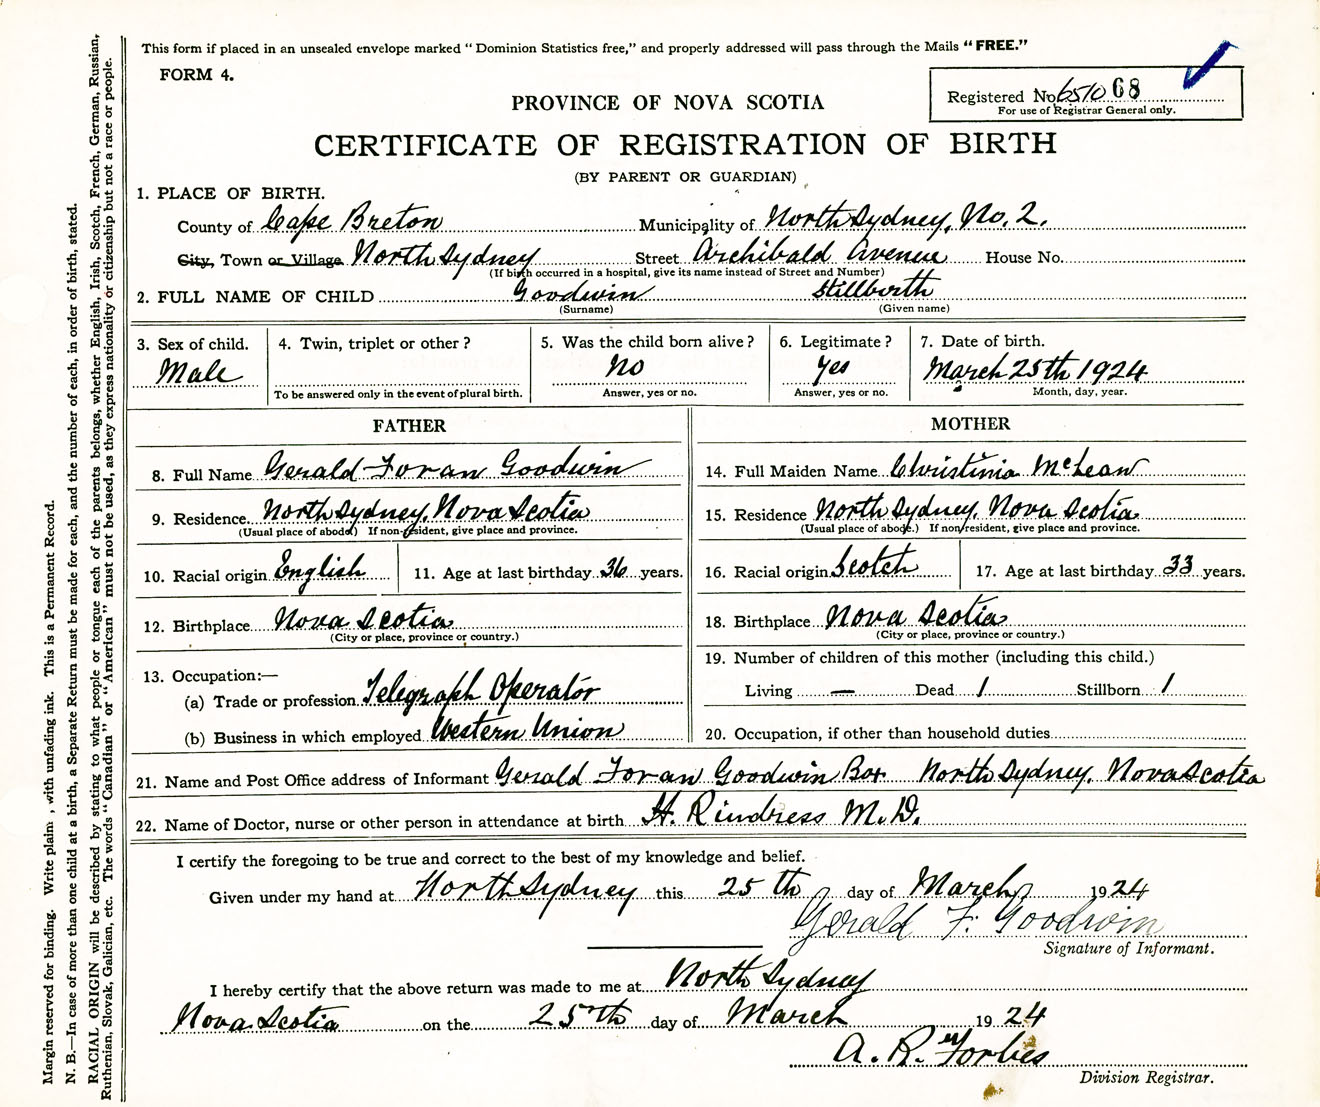 This form if placed in an unsealed envelope marked "Dominion Statistics free," and properly addressed will pass through the Mails "FREE."
FORM 4.
Registered No 6510 68
For use of Registrar General only.
PROVINCE OF NOVA SCOTIA
CERTIFICATE OF REGISTRATION OF BIRTH
(BY PARENT OR GUARDIAN)
1. PLACE OF BIRTH.
County of Cape Breton Municipality of North Sydney, No. 2.
City, Town or Village North Sydney Street Archibald Avenue House No.
(If birth occurred in a hospital, give its name instead of Street and Number)
2. FULL NAME OF CHILD Goodwin Stillbirth
(Surname) (Given name)
3. Sex of child. 4. Twin, triplet or other? 5. Was the child born alive? 6. Legitimate? 7. Date of birth.
Male No Yes March 25th 1924
To be answered only in the event of plural birth. Answer, yes or no. Answer, yes or no. Month, day, year.
FATHER MOTHER
8. Full Name Gerald Foran Goodwin 14. Full Maiden Name Christinia McLean
9. Residence North Sydney, Nova Scotia 15. Residence North Sydney, Nova Scotia
(Usual place of abode) If non-resident, give place and province. (Usual place of abode.) If non-resident, give place and province.
10. Racial origin English 11. Age at last birthday 36 years. 16. Racial origin Scotch 17. Age at last birthday 33 years.
12. Birthplace Nova Scotia 18. Birthplace Nova Scotia
(City or place, province or country.) (City or place, province or country.)
13. Occupation:— 19. Number of children of this mother (including this child.)
(a) Trade or profession Telegraph Operator Living — Dead 1 Stillborn 1
(b) Business in which employed Western Union 20. Occupation, if other than household duties
21. Name and Post Office address of Informant Gerald Foran Goodwin Box North Sydney, Nova Scotia
22. Name of Doctor, nurse or other person in attendance at birth H. Rindress M.D.
I certify the foregoing to be true and correct to the best of my knowledge and belief.
Given under my hand at North Sydney this 25th day of March 1924
Gerald F. Goodwin
Signature of Informant.
I hereby certify that the above return was made to me at North Sydney
Nova Scotia on the 25th day of March 1924
A. R. Forbes
Division Registrar.
Margin reserved for binding. Write plain, with unfading ink. This is a Permanent Record.
N. B.—In case of more than one child at a birth, a Separate Return must be made for each, and the number of each, in order of birth, stated.
RACIAL ORIGIN will be described by stating to what people or tongue each of the parents belongs, whether English, Irish, Scotch, French, German, Russian,
Ruthenian, Slovak, Galician, etc. The words "Canadian" or "American" must not be used, as they express nationality or citizenship but not a race or people.